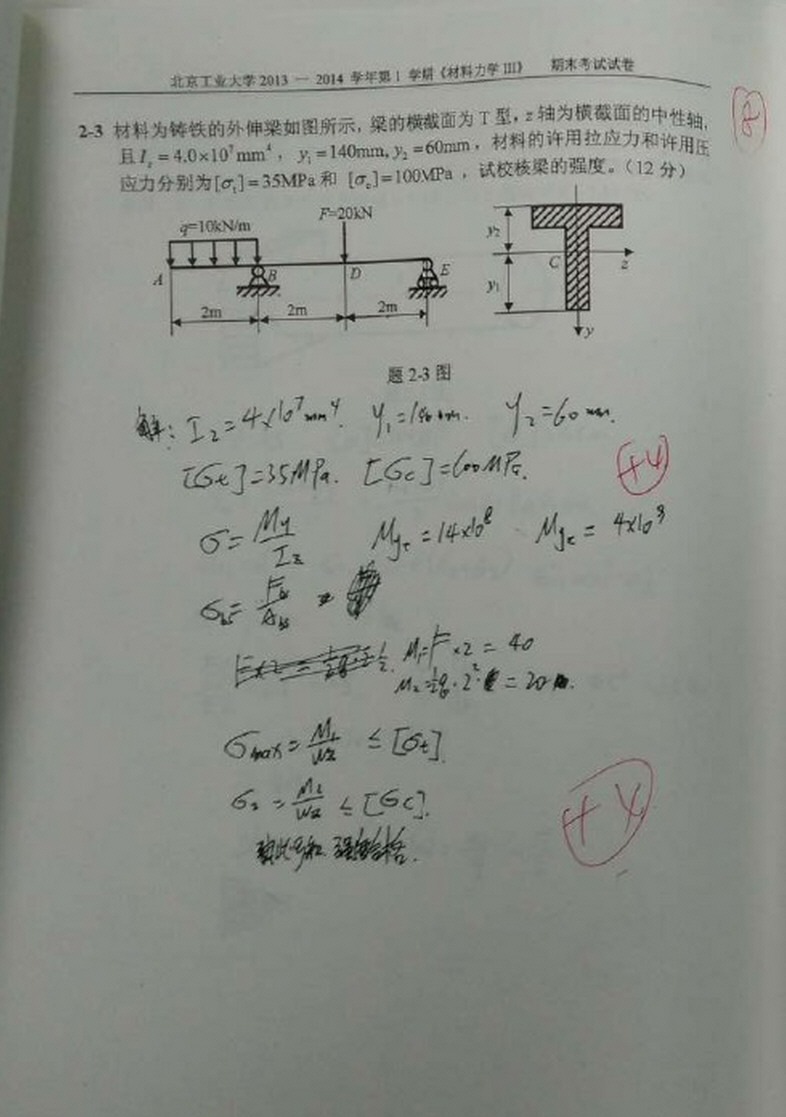 北京工业大学2013 — 2014 学年第1 学期《材料力学 III》 期末考试试卷
8
2-3 材料为铸铁的外伸梁如图所示,梁的横截面为T型,z轴为横截面的中性轴,
且I_z=4.0×10⁷mm⁴, y₁=140mm, y₂=60mm, 材料的许用拉应力和许用压
应力分别为[σ_t]=35MPa 和 [σ_c]=100MPa, 试校核梁的强度。(12分)
q=10kN/m F=20kN y₂
A B D E C z
2m 2m 2m y₁
y
题2-3图
解: I_z=4×10⁷mm⁴ y₁=140mm. y₂=60mm.
[σ_t]=35MPa. [σ_c]=100MPa. +4
σ=My/I_z =14×10⁸ = 4×10⁸
M₁=F×2=40
=20
σmax= ≤[σ_t]
≤[σ_c]. +4